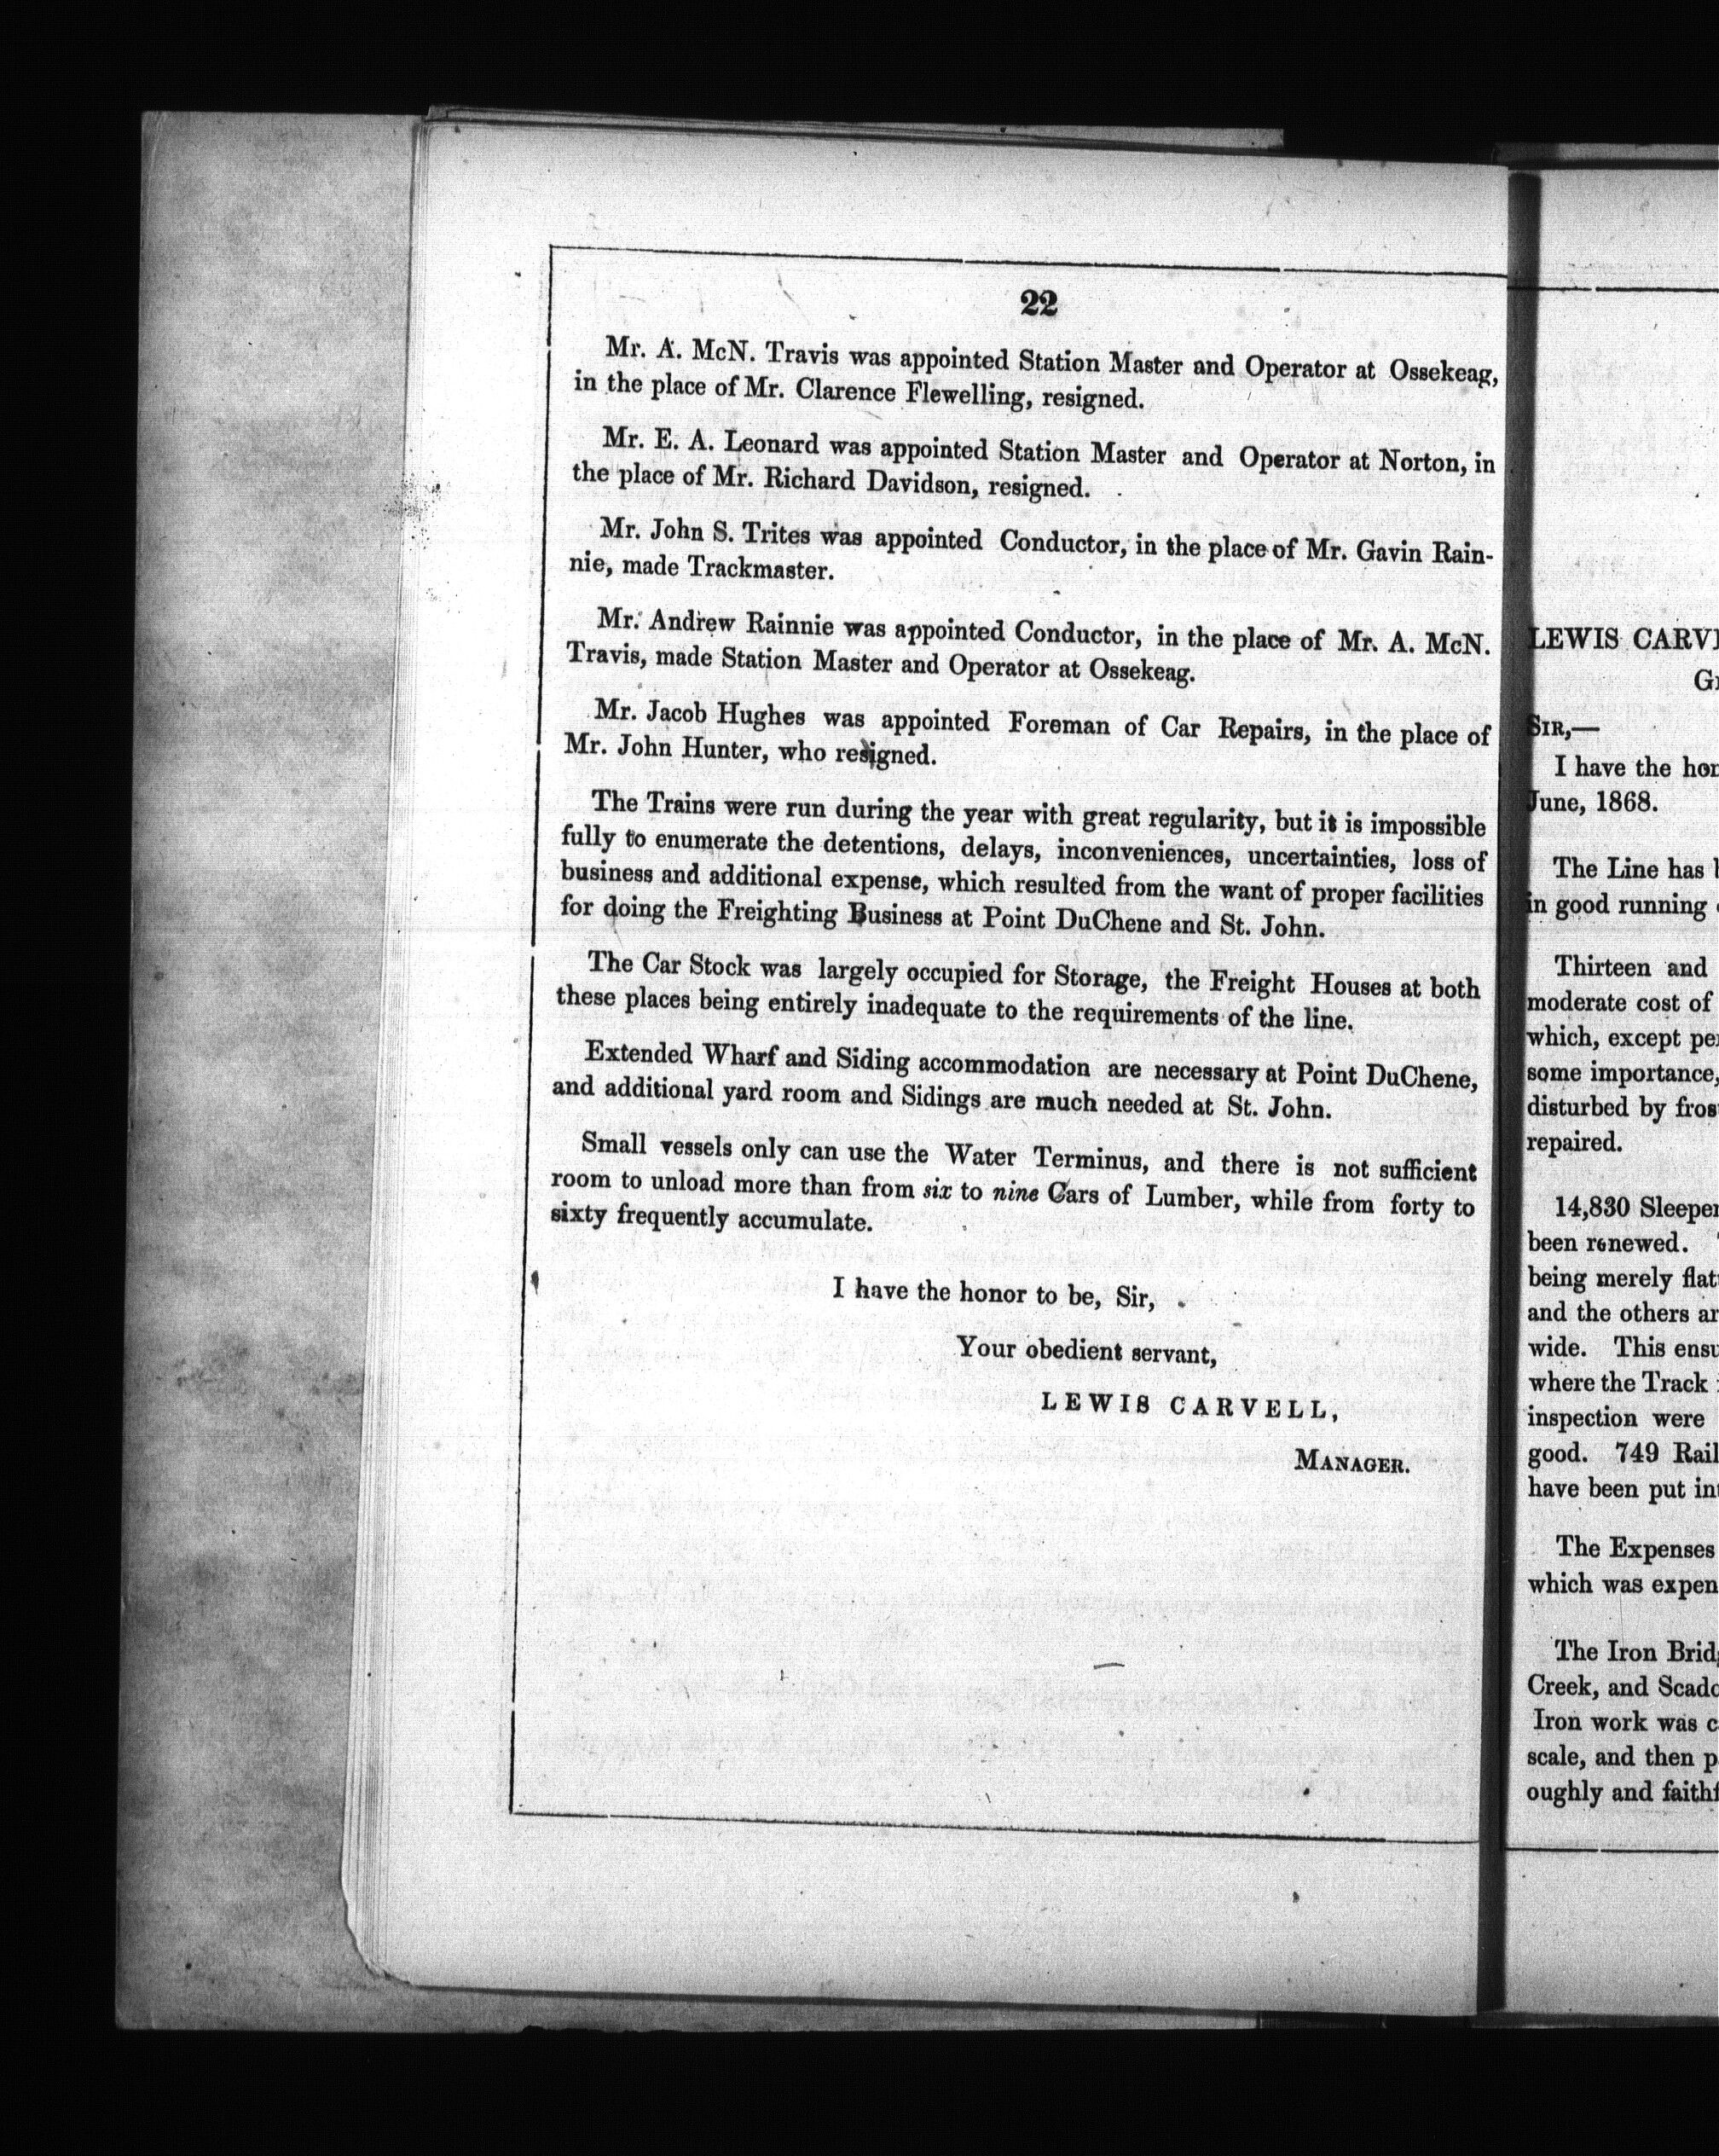 22
Mr. A. McN. Travis was appointed Station Master and Operator at Ossekeag,
in the place of Mr. Clarence Flewelling, resigned.
Mr. E. A. Leonard was appointed Station Master and Operator at Norton, in
the place of Mr. Richard Davidson, resigned.
Mr. John S. Trites was appointed Conductor, in the place of Mr. Gavin Rain-
nie, made Trackmaster.
Mr. Andrew Rainnie was appointed Conductor, in the place of Mr. A. McN.
Travis, made Station Master and Operator at Ossekeag.
Mr. Jacob Hughes was appointed Foreman of Car Repairs, in the place of
Mr. John Hunter, who resigned.
The Trains were run during the year with great regularity, but it is impossible
fully to enumerate the detentions, delays, inconveniences, uncertainties, loss of
business and additional expense, which resulted from the want of proper facilities
for doing the Freighting Business at Point DuChene and St. John.
The Car Stock was largely occupied for Storage, the Freight Houses at both
these places being entirely inadequate to the requirements of the line.
Extended Wharf and Siding accommodation are necessary at Point DuChene,
and additional yard room and Sidings are much needed at St. John.
Small vessels only can use the Water Terminus, and there is not sufficient
room to unload more than from six to nine Cars of Lumber, while from forty to
sixty frequently accumulate.
I have the honor to be, Sir,
Your obedient servant,
LEWIS CARVELL,
MANAGER.
LEWIS CARV
G
SIR,—
I have the hon
June, 1868.
The Line has
in good running
Thirteen and
moderate cost of
which, except pe
some importance,
disturbed by fros
repaired.
14,830 Sleeper
been renewed.
being merely flat
and the others ar
wide. This ensu
where the Track
inspection were
good. 749 Rail
have been put in
The Expenses
which was expen
The Iron Brid
Creek, and Scado
Iron work was c
scale, and then p
oughly and faith